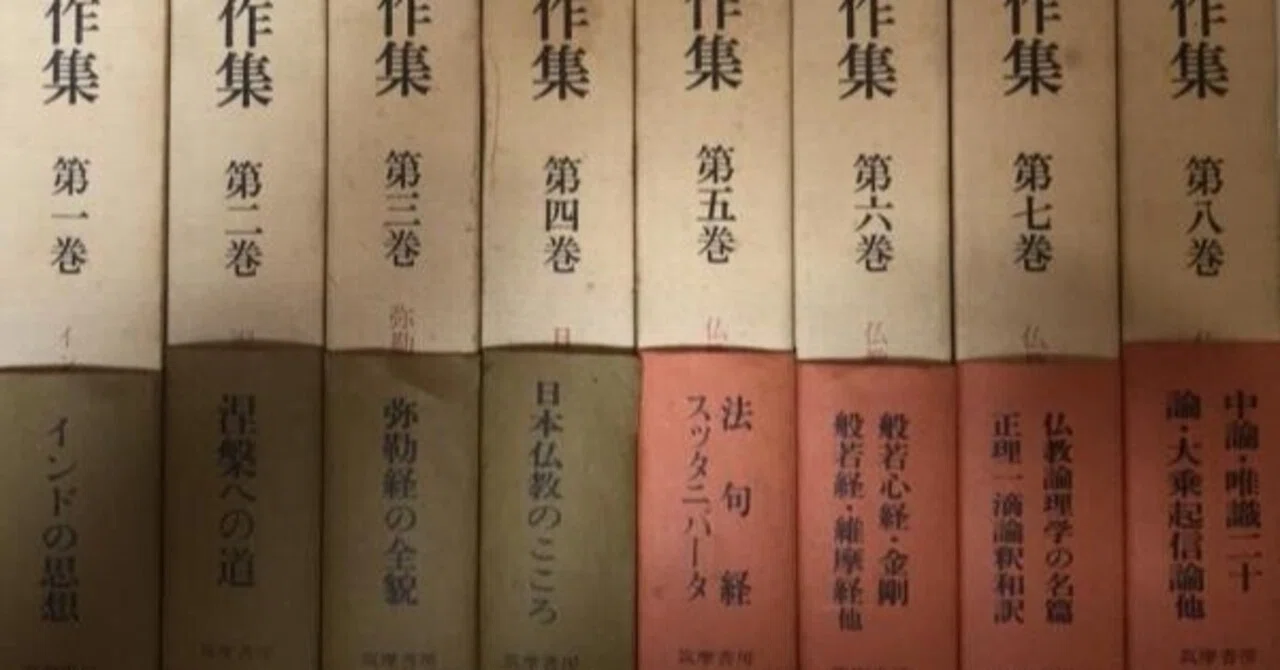 作集
第一巻
イン
インドの思想
筑摩書房
作集
第二巻
涅槃への道
筑摩書房
作集
第三巻
弥勒
弥勒経の全貌
筑摩書房
作集
第四巻
日
日本仏教のこころ
筑摩書房
作集
第五巻
仏
法句経
スッタニパータ
筑摩書房
作集
第六巻
仏
般若心経・金剛
般若経・維摩経他
筑摩書房
作集
第七巻
仏
仏教論理学の名篇
正理一滴論釈和訳
筑摩書房
作集
第八巻
中論・唯識二十
論・大乗起信論他
筑摩書房